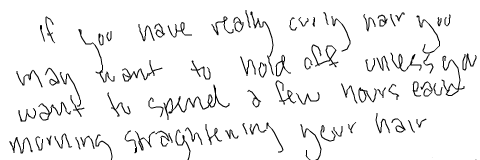 if you have really curly hair you
may want to hold off unless you
want to spend a few hours each
morning straightening your hair